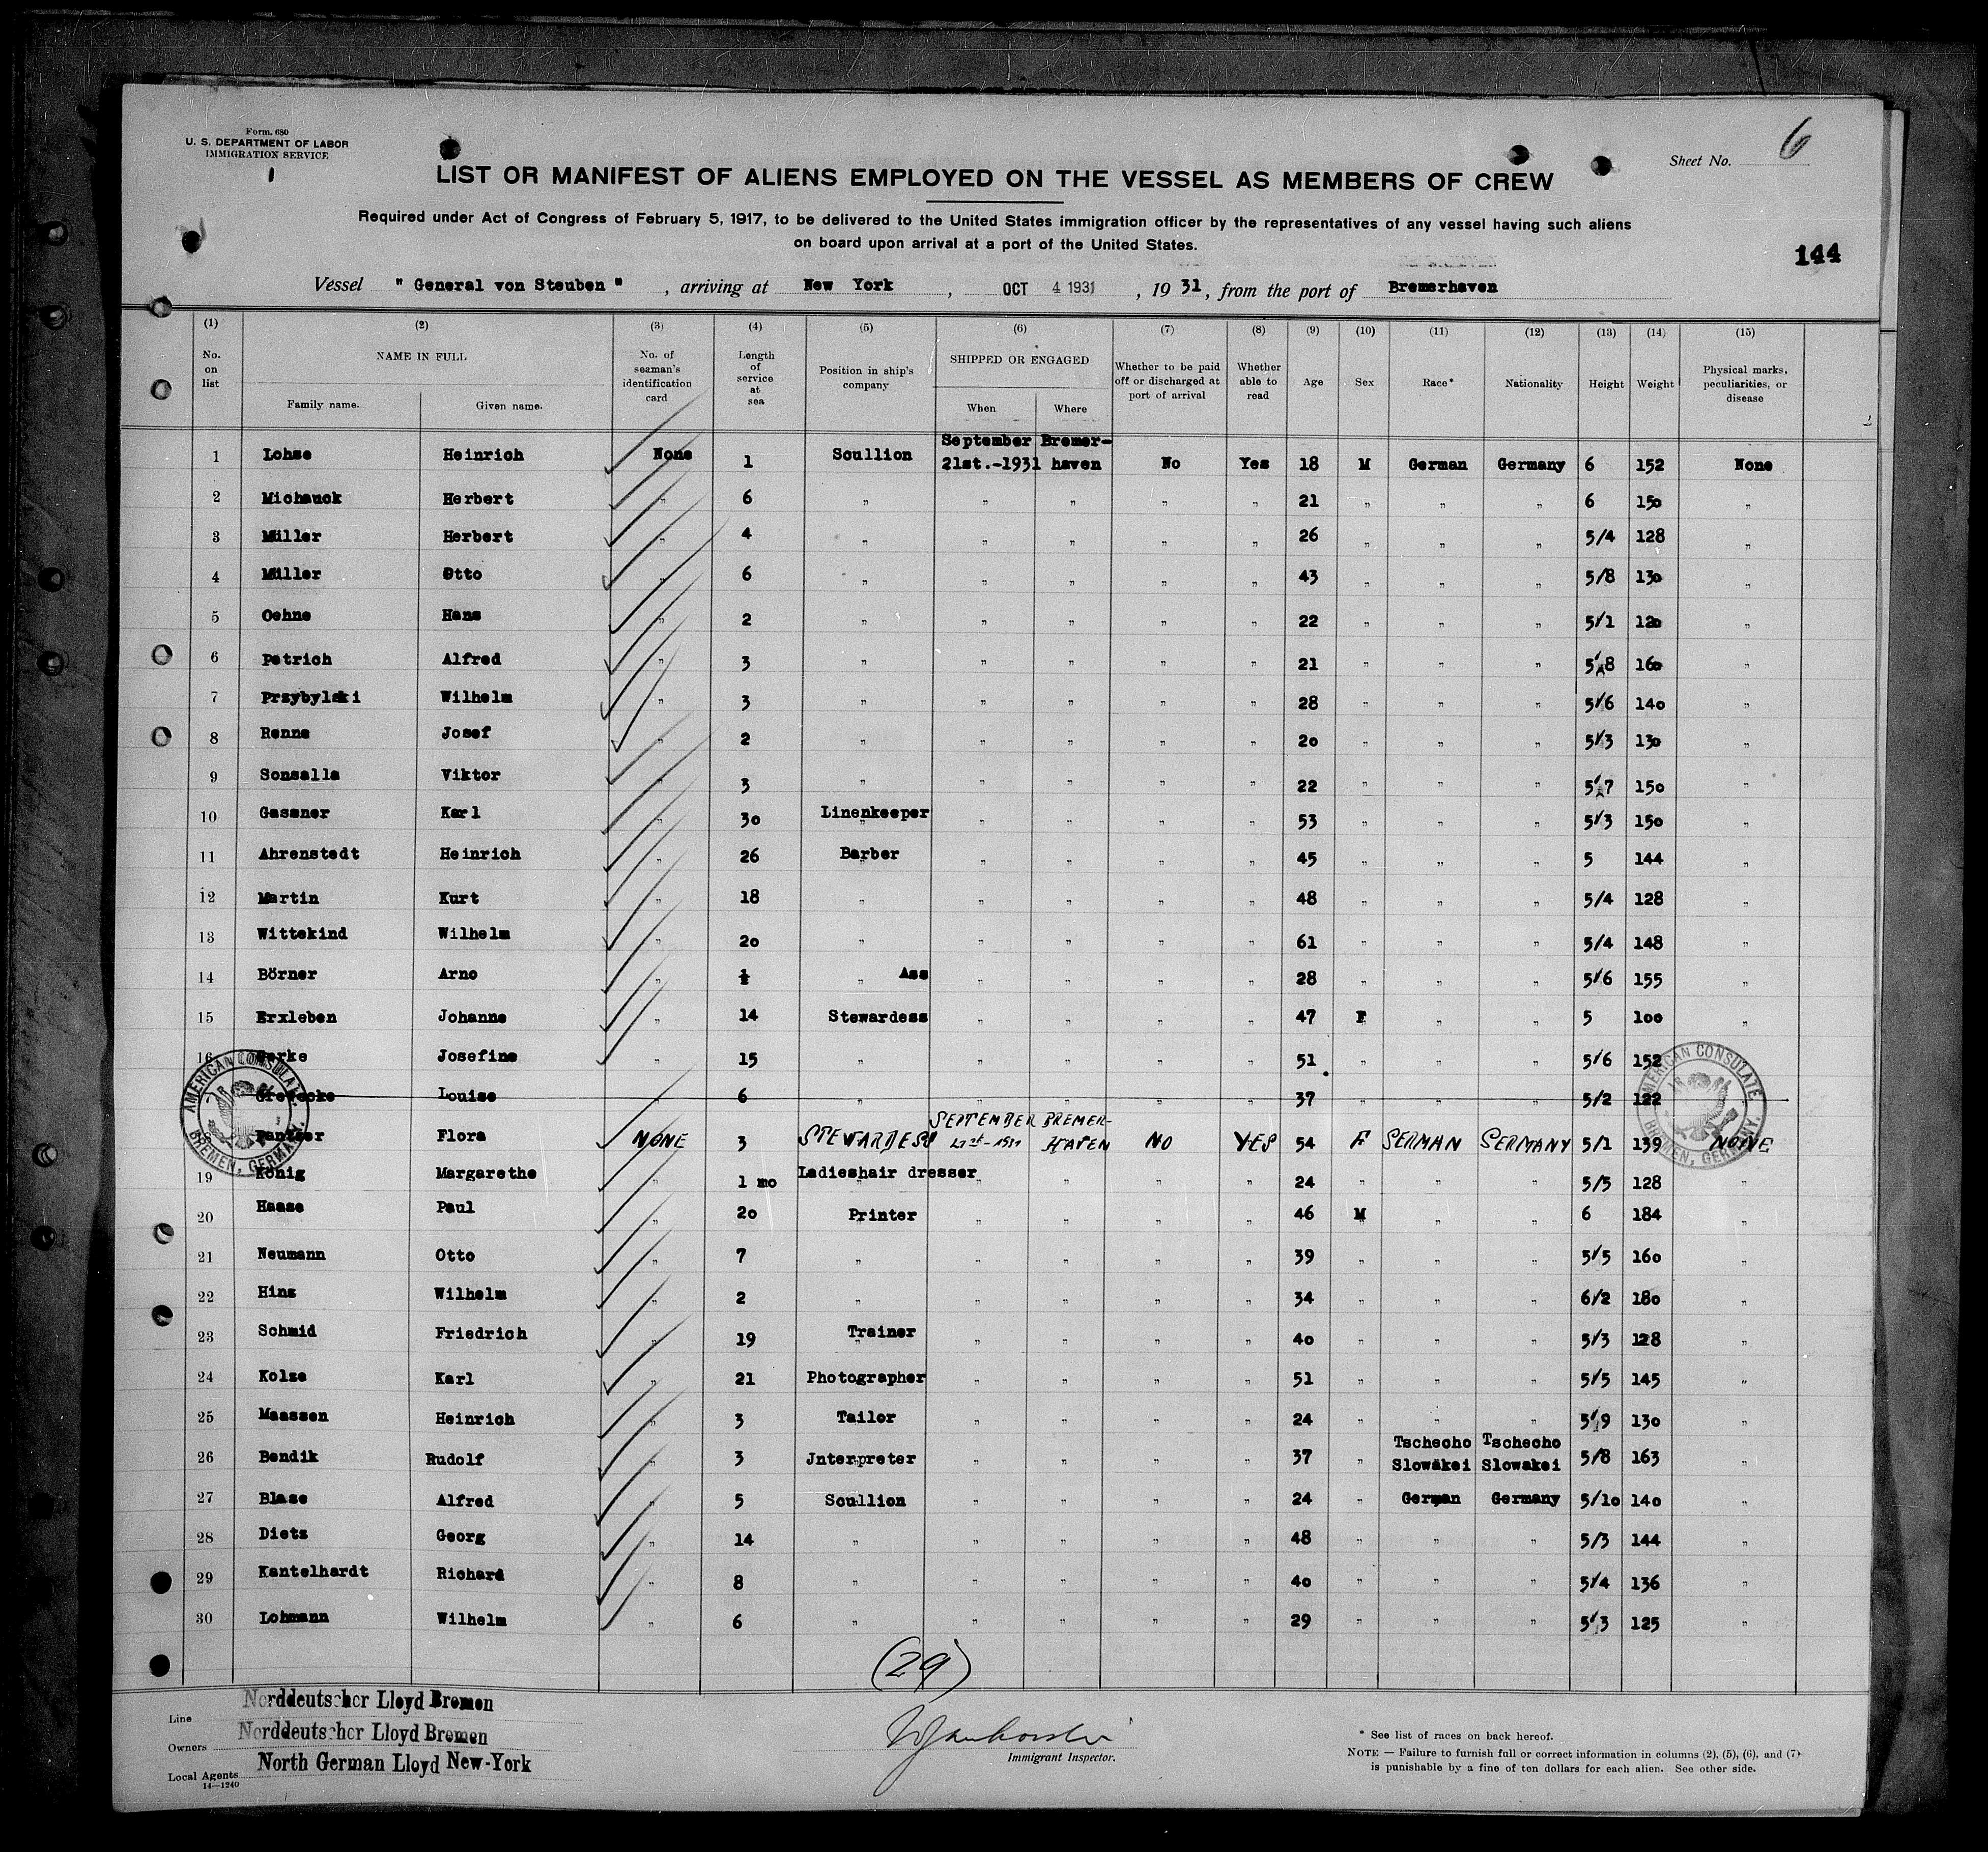 Form. 680
U. S. DEPARTMENT OF LABOR
IMMIGRATION SERVICE
Sheet No. 6
LIST OR MANIFEST OF ALIENS EMPLOYED ON THE VESSEL AS MEMBERS OF CREW
Required under Act of Congress of February 5, 1917, to be delivered to the United States immigration officer by the representatives of any vessel having such aliens
on board upon arrival at a port of the United States.
144
Vessel " General von Steuben " , arriving at New York , OCT 4 1931 , 19 31, from the port of Bremerhaven
(1) (2) (3) (4) (5) (6) (7) (8) (9) (10) (11) (12) (13) (14) (15)
No. on list NAME IN FULL Family name. Given name. No. of seaman's identification card Length of service at sea Position in ship's company SHIPPED OR ENGAGED When Where Whether to be paid off or discharged at port of arrival Whether able to read Age Sex Race* Nationality Height Weight Physical marks, peculiarities, or disease
1 Lohse Heinrich None 1 Scullion September 21st.-1931 Bremer-haven No Yes 18 M German Germany 6 152 None
2 Michauck Herbert " 6 " " " " " 21 " " " 6 150 "
3 Müller Herbert " 4 " " " " " 26 " " " 5/4 128 "
4 Müller Otto " 6 " " " " " 43 " " " 5/8 130 "
5 Oehne Hans " 2 " " " " " 22 " " " 5/1 120 "
6 Petrich Alfred " 3 " " " " " 21 " " " 5/8 160 "
7 Przybylski Wilhelm " 3 " " " " " 28 " " " 5/6 140 "
8 Renne Josef " 2 " " " " " 20 " " " 5/3 130 "
9 Sonsalla Viktor " 3 " " " " " 22 " " " 5/7 150 "
10 Gassner Karl " 30 Linenkeeper " " " " 53 " " " 5/3 150 "
11 Ahrenstedt Heinrich " 26 Barber " " " " 45 " " " 5 144 "
12 Martin Kurt " 18 " " " " " 48 " " " 5/4 128 "
13 Wittekind Wilhelm " 20 " " " " " 61 " " " 5/4 148 "
14 Börner Arno " ½ " Ass " " " " 28 " " " 5/6 155 "
15 Erxleben Johanne " 14 Stewardess " " " " 47 F " " 5 100 "
16 Gerke Josefine " 15 " " " " " 51 " " " 5/6 152 "
Louise 6 " " " " " 37 " " " 5/2 122
Flora NONE 3 STEWARDESS SEPTEMBER BREMER-HAVEN NO YES 54 F GERMAN GERMANY 5/1 139 NONE
19 König Margarethe " 1 mo Ladieshair dresser " " " " 24 " " " 5/5 128 "
20 Haase Paul " 20 Printer " " " " 46 M " " 6 184 "
21 Neumann Otto " 7 " " " " " 39 " " " 5/5 160 "
22 Hinz Wilhelm " 2 " " " " " 34 " " " 6/2 180 "
23 Schmid Friedrich " 19 Trainer " " " " 40 " " " 5/3 128 "
24 Kolze Karl " 21 Photographer " " " " 51 " " " 5/5 145 "
25 Maassen Heinrich " 3 Tailor " " " " 24 " " " 5/9 130 "
26 Bendik Rudolf " 3 Jnterpreter " " " " 37 " Tschecho Slowakei Tschecho Slowakei 5/8 163 "
27 Blase Alfred " 5 Scullion " " " " 24 " German Germany 5/10 140 "
28 Dietz Georg " 14 " " " " " 48 " " " 5/3 144 "
29 Kantelhardt Richard " 8 " " " " " 40 " " " 5/4 136 "
30 Lohmann Wilhelm " 6 " " " " " 29 " " " 5/3 125 "
AMERICAN CONSULATE
BREMEN, GERMANY.
AMERICAN CONSULATE
BREMEN, GERMANY.
(29)
Line Norddeutscher Lloyd Bremen
Owners Norddeutscher Lloyd Bremen
Local Agents North German Lloyd New-York
14—1240
Immigrant Inspector.
* See list of races on back hereof.
NOTE — Failure to furnish full or correct information in columns (2), (5), (6), and (7)
is punishable by a fine of ten dollars for each alien. See other side.